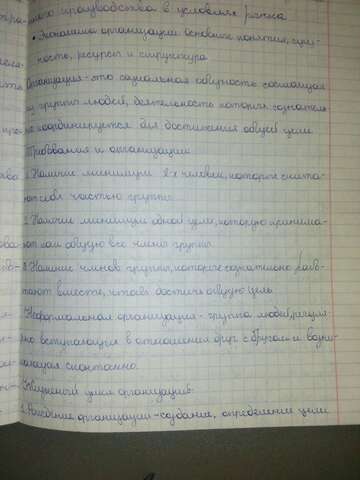 производства в условиях рынка
• Экономика организации: основные понятия, сущ-
ность, ресурсы и структура
Организация - это социальная общность состоящая
из группы людей, деятельность которых сознатель
но координируется для достижения общей цели
Требования к организации:
1. Наличие минимум 2-х человек, которые счита-
ют себя частью группы.
2. Наличие минимум одной цели, которую принима-
ют как общую все члены группы.
3. Наличие членов группы, которые сознательно рабо-
тают вместе, чтобы достичь общую цель.
Неформальная организация - группа людей,
вступающих в отношения друг с другом и возни-
кающая спонтанно.
Жизненный цикл организации:
1. организации - создание, определение цели